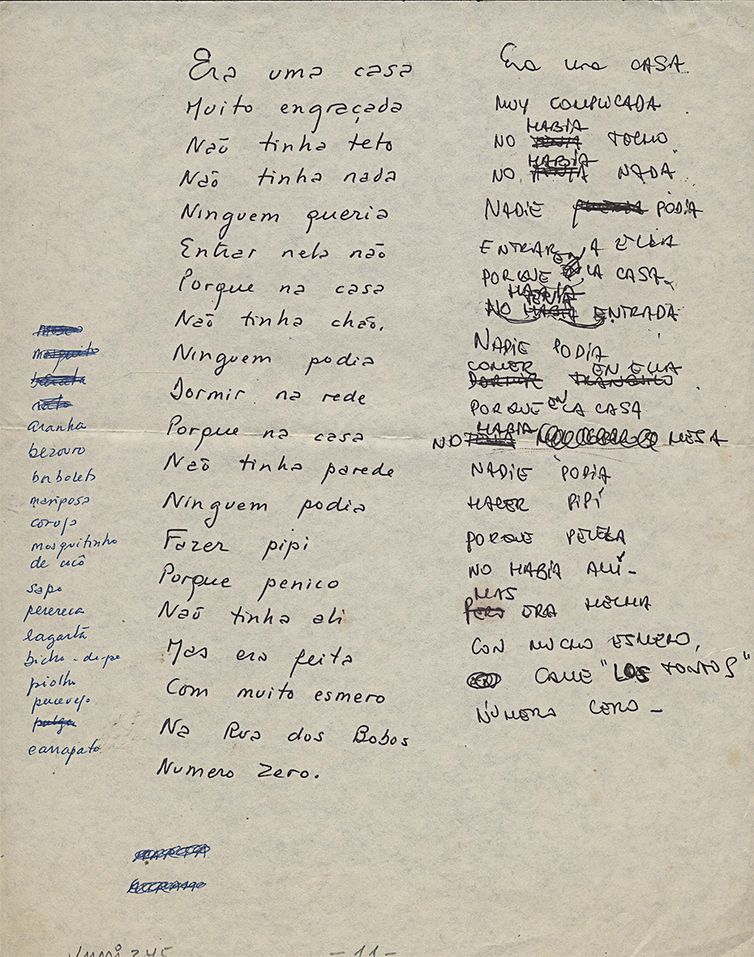 Era uma casa
Muito engraçada
Não tinha teto
Não tinha nada
Ninguem queria
Entrar nela não
Porque na casa
Não tinha chão.
Ninguem podia
Dormir na rede
Porque na casa
Não tinha parede
Ninguem podia
Fazer pipi
Porque penico
Não tinha ali
Mas era feita
Com muito esmero
Na Rua dos Bobos
Numero Zero.
Era una CASA
MUY COMPLICADA
NO HABÍA TECHO
NO HABÍA NADA
NADIE PODÍA
ENTRAR A ELLA
PORQUE EN LA CASA
NO HABÍA ENTRADA
NADIE PODÍA
COMER EN ELLA
PORQUE EN LA CASA
NO HABÍA MESA
NADIE PODÍA
HACER PIPÍ
PORQUE PELELA
NO HABÍA ALLÍ -
MAS ERA HECHA
CON MUCHO ESMERO,
CALLE "LOS TONTOS"
NÚMERO CERO -
mosquito
rato
aranha
bezouro
borboleta
mariposa
coruja
mosquitinho
de cocô
sapo
perereca
lagarta
bicho-de-pé
piolho
percevejo
pulga
carrapato
- 11 -